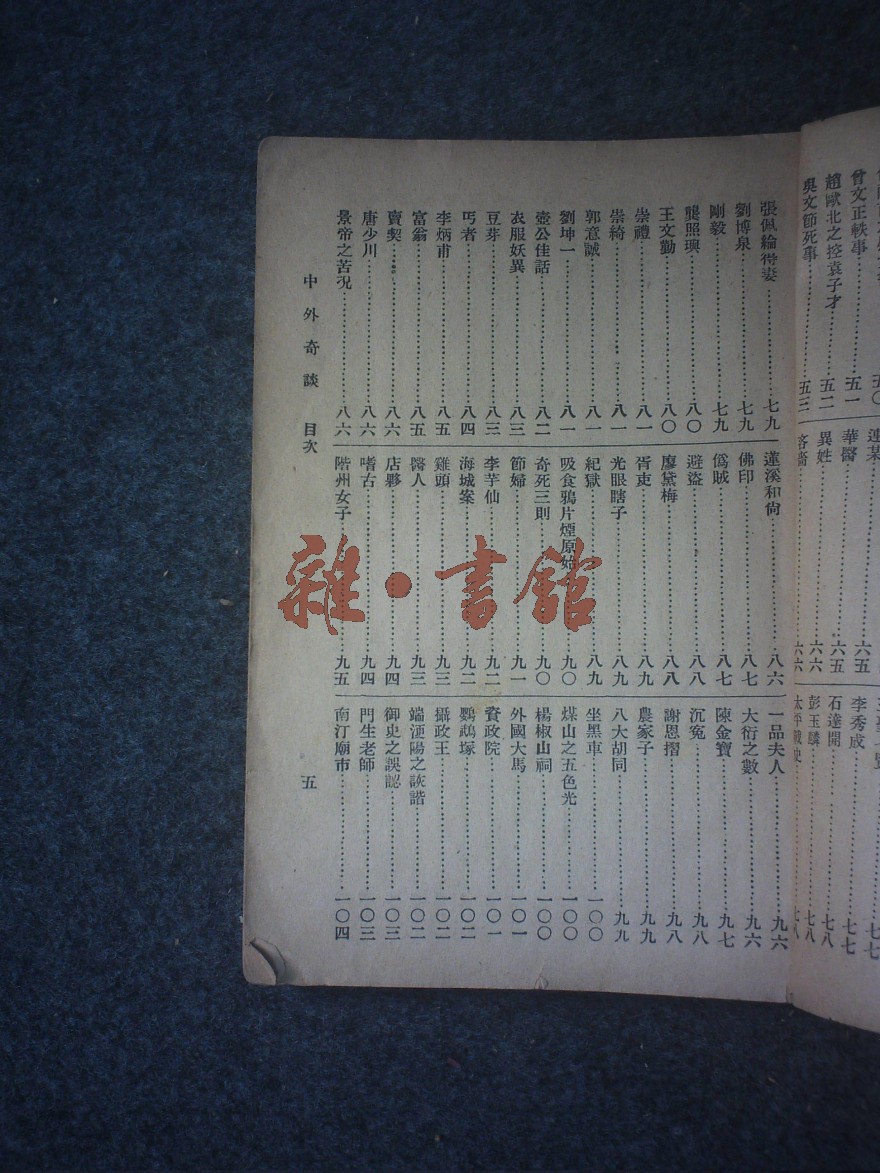 曾文正軼事……五一
趙歐北之控袁子才……五二
吳文節死事……五三
華醫……六五
異姓……六六
李秀成……七七
石達開……七八
彭玉麟……七八
張佩綸得妻……七九
劉博泉……七九
剛毅……七九
龔照璵……八〇
王文勤……八〇
崇禮……八一
崇綺……八一
郭意誠……八一
劉坤一……八一
壺公佳話……八二
衣服妖異……八三
豆芽……八三
丐者……八四
李炳甫……八五
富翁……八五
賣契……八六
唐少川……八六
景帝之苦況……八六
蓮溪和尙……八六
佛印……八七
僞賊……八七
避盜……八八
廖黛梅……八八
胥吏……八九
光眼瞎子……八九
紀獄……八九
吸食鴉片煙原始……九〇
奇死三則……九〇
節婦……九一
李芋仙……九二
海城案……九二
雞頭……九三
醫人……九三
店夥……九四
嗜古……九四
階州女子……九五
一品夫人……九六
大衍之數……九六
陳金寶……九七
沉寃……九八
謝恩摺……九八
農家子……九九
八大胡同……九九
坐黑車……一〇〇
煤山之五色光……一〇〇
楊椒山祠……一〇〇
外國大馬……一〇一
資政院……一〇一
鸚鵡塚……一〇二
攝政王……一〇二
端浭陽之詼諧……一〇二
御史之誤認……一〇三
門生老師……一〇三
南汀廟市……一〇四
中外奇談 目次
五
雜·書館